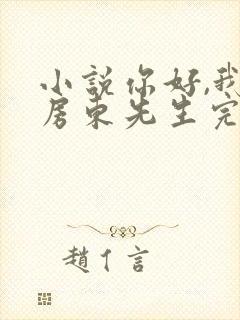 小說你好,我
房東先生完
趙亻言